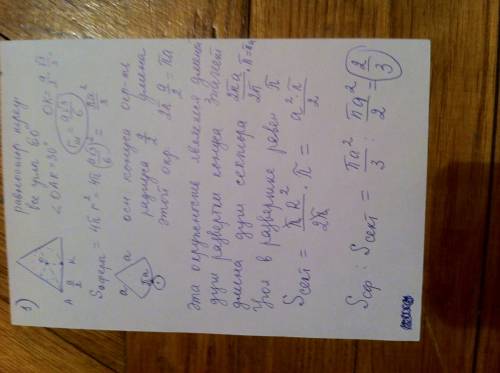 1) равностор треуг
все углы 60°
∠OAK = 30° OK = a/2 · √3/3
rш = a√3/6
Sсфера = 4πr² = 4π(a√3/6)² = πa²/3
осн конуса окр-ть
радиуса a/2 длина
этой окр. 2π a/2 = πa
Эта окружность является длиной
дуги развертки конуса значит
длина дуги сектора
Угол в развертке равен π
Sсект = πR²/2π · π = a²·π/2
Sсф : Sсект = πa²/3 : πa²/2 = 2/3